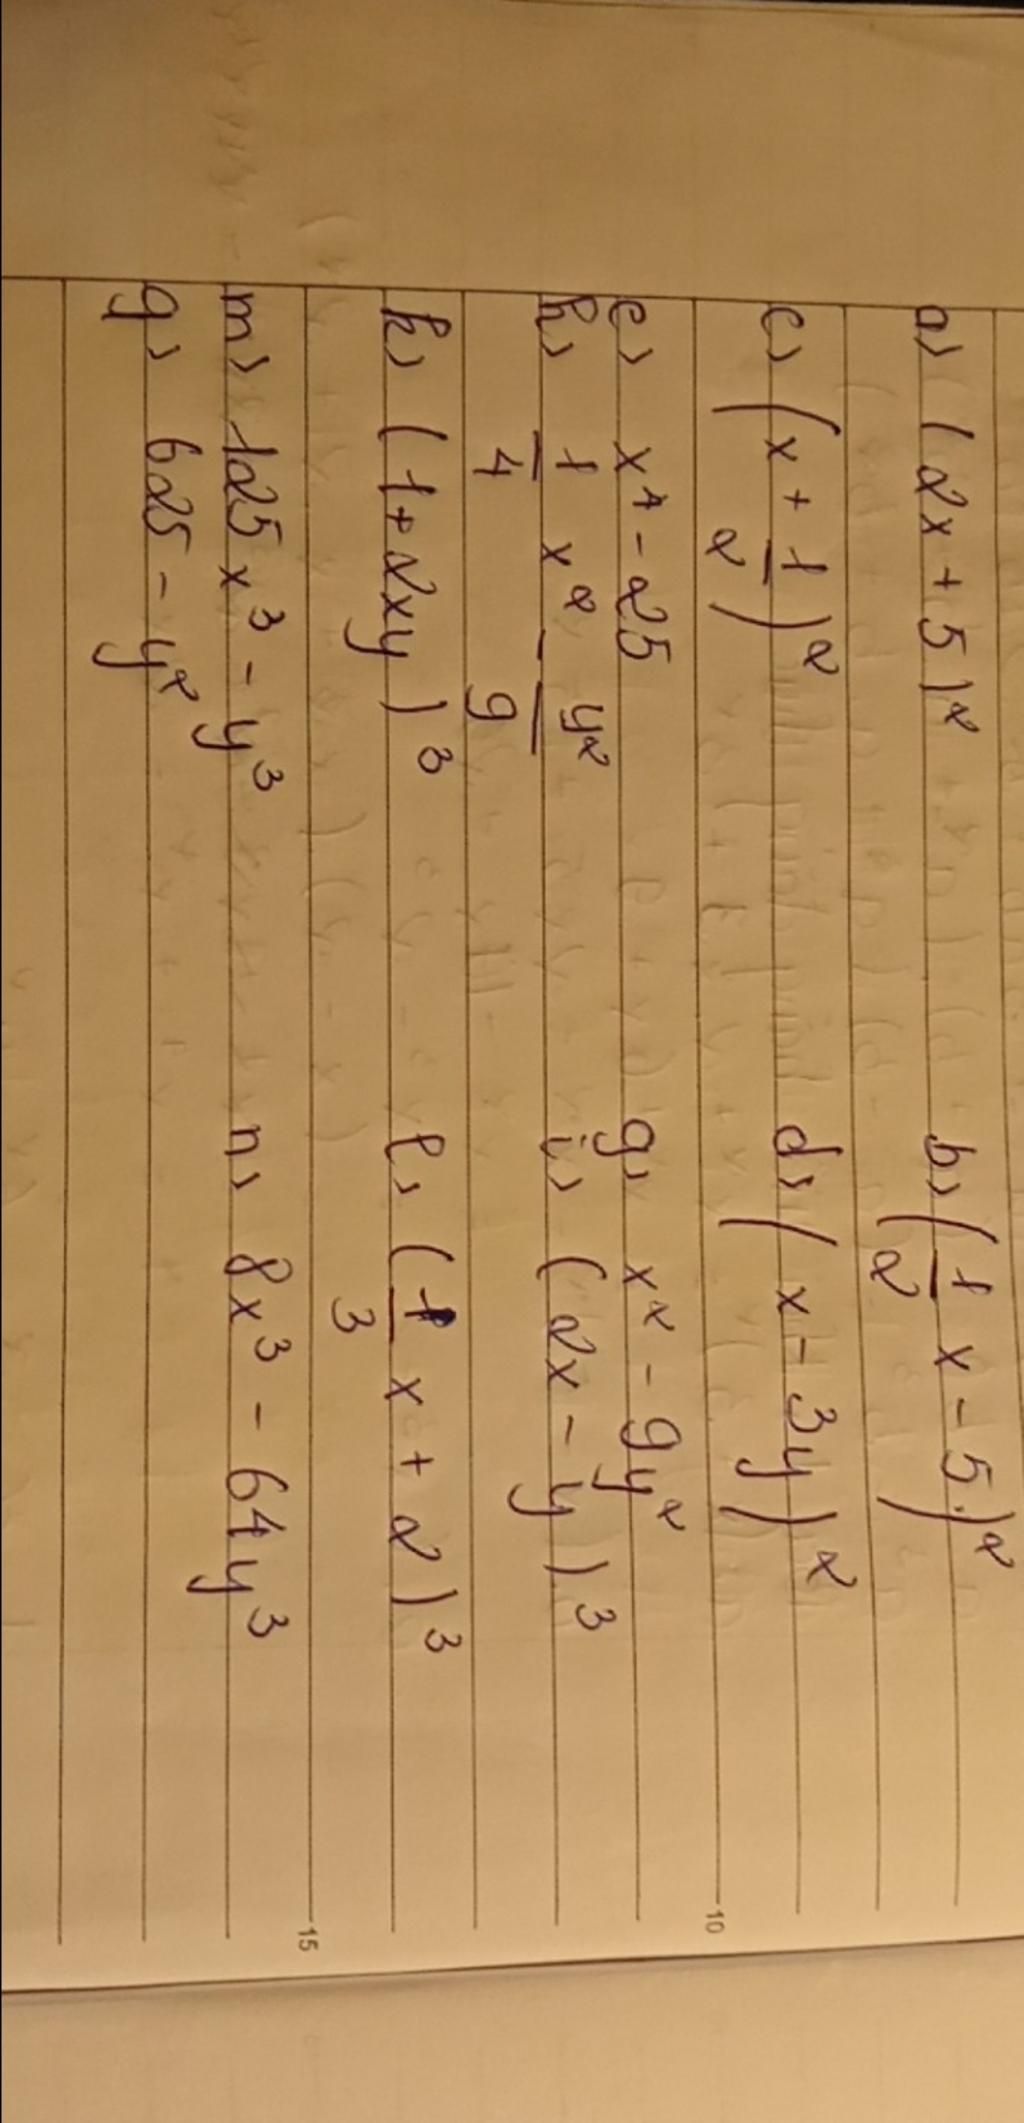 a) (2x + 5)² b) (1/2 x - 5)²
c) (x + 1/2)² d) (x - 3y)²
e) x⁴ - 25 g) x² - 9y²
h) 1/4 x² - y²/9 i) (2x - y)³
k) (1 + 2xy)³ l) (1/3 x + 2)³
m) 125x³ - y³ n) 8x³ - 64y³
q) 625 - y²
10
15